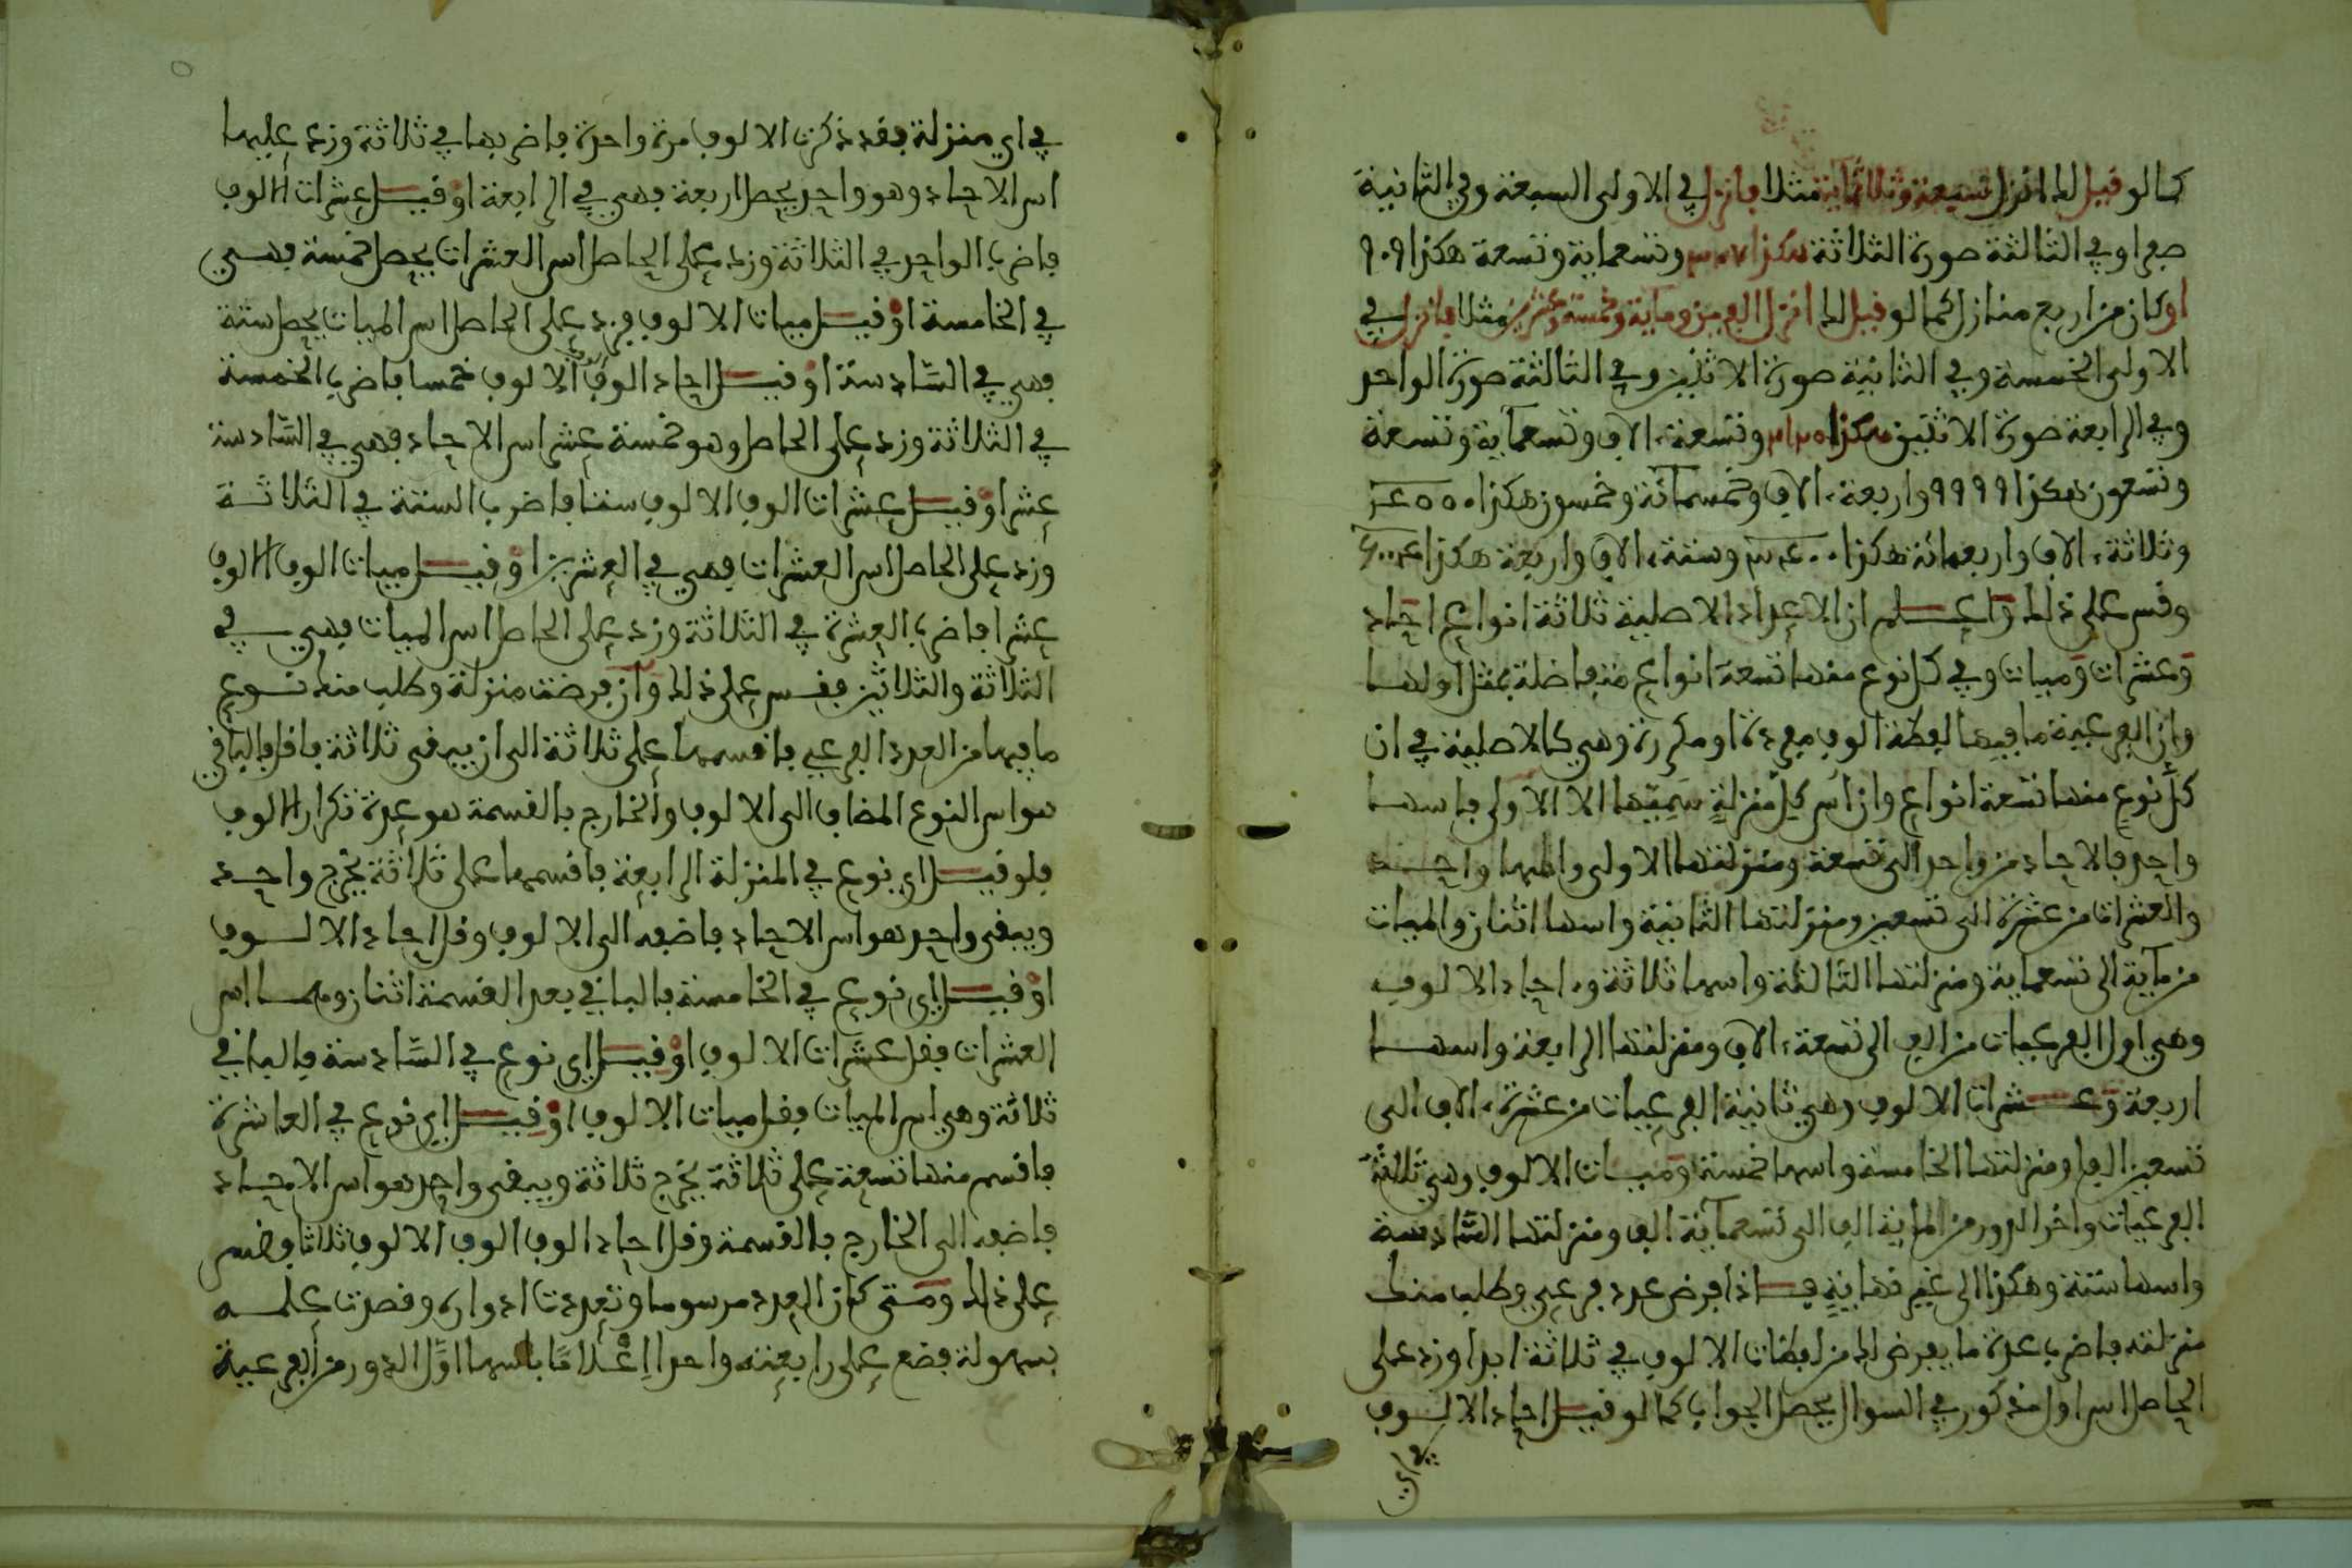 كما لو قيل لك انزل سبعة وثلاثماية مثلا فانزل في الاولى السبعة وفي الثانية
صفرا وفي الثالثة صورة الثلاثة هكذا ٣٠٧ وتسعماية وتسعة هكذا ٩٠٩
او كان من اربع منازل كما لو قيل لك انزل الفين وماية وخمسة وعشرين مثلا فانزل في
الاولى الخمسة وفي الثانية صورة الاثنين وفي الثالثة صورة الواحد
وفي الرابعة صورة الاثنين هكذا ٢١٢٥ وتسعة ءالاف وتسعماية وتسعة
وتسعون هكذا ٩٩٩٩ واربعة ءالاف وخمسمائة وخمسون هكذا ٤٥٥٠
وثلاثة ءالاف واربعمائة هكذا ٣٤٠٠ وستة ءالاف واربعة هكذا ٦٠٠٤
وقس على ذلك واعلم ان الاعداد الاصلية ثلاثة انواع احاد
وعشرات وميات وفي كل نوع منها تسعة انواع متفاضلة بمثل اولها
وان الفرعية ما فيها لفظة الوف مفردة او مكررة وهي كالاصلية في ان
كل نوع منها تسعة انواع وان اس كل منزلة سميها الا الاولى فاسها
واحد فالاحاد من واحد الى تسعة ومنزلتها الاولى واسها واحد
والعشرات من عشرة الى تسعين ومنزلتها الثانية واسها اثنان والميات
من ماية الى تسعماية ومنزلتها الثالثة واسها ثلاثة وءاحاد الالوف
وهي اول الفرعيات من الف الى تسعة ءالاف ومنزلتها الرابعة واسها
اربعة وعشرات الالوف وهي ثانية الفرعيات من عشرة ءالاف الى
تسعين الفا ومنزلتها الخامسة واسها خمسة وميات الالوف وهي ثالثة
الفرعيات واخر الدور من الماية الف الى تسعماية الف ومنزلتها السادسة
واسها ستة وهكذا الى غير نهاية فاذا فرض عدد فرعي وطلب منك
منزلته فاضرب عدة ما يعرض لك من لفظات الالوف في ثلاثة ابدا وزد على
الحاصل اس اول مذكور في السوال يحصل الجواب كما لو قيل احاد الالوف
في اي
في اي منزلة فقد ذكرت الالوف مرة واحدة فاضربها في ثلاثة وزد عليها
اس الاحاد وهو واحد يحصل اربعة فهي في الرابعة او قيل عشرات الالوف
فاضرب الواحد في الثلاثة وزد على الحاصل اس العشرات يحصل خمسة فهي
في الخامسة او قيل ميات الالوف فزد على الحاصل اس الميات يحصل ستة
فهي في السادسة او قيل احاد الوف الوف الالوف خمسا فاضرب الخمسة
في الثلاثة وزد على الحاصل وهو خمسة عشر اس الاحاد فهي في السادسة
عشر او قيل عشرات الوف الالوف ستا فاضرب الستة في الثلاثة
وزد على الحاصل اس العشرات فهي في العشرين او قيل ميات الوف الالوف
عشرا فاضرب العشرة في الثلاثة وزد على الحاصل اس الميات فهي في
الثلاثة والثلاثين فقس على ذلك وان فرضت منزلة وطلب منك نوع
ما فيها من العدد الفرعي فاقسمها على ثلاثة الى ان يبقى ثلاثة فاقل فالباقي
هو اس النوع المضاف الى الالوف والخارج بالقسمة هو عدة تكرار الالوف
فلو قيل اي نوع في المنزلة الرابعة فاقسمها على ثلاثة يخرج واحد
ويبقى واحد هو اس الاحاد فاضفه الى الالوف وقل احاد الالوف
او قيل اي نوع في الخامسة فالباقي بعد القسمة اثنان وهما اس
العشرات فقل عشرات الالوف او قيل اي نوع في السادسة فالباقي
ثلاثة وهي اس الميات فقل ميات الالوف او قيل اي نوع في العاشرة
فاقسم منها تسعة على ثلاثة يخرج ثلاثة ويبقى واحد هو اس الاحاد
فاضفه الى الخارج بالقسمة وقل احاد الوف الوف الالوف ثلاثا وقس
على ذلك ومتى كان العدد مرسوما وتعددت ادواره وقصدت علمه
بسهولة فضع على رابعته واحدا اعلاما بانها اول الدور من الفرعية